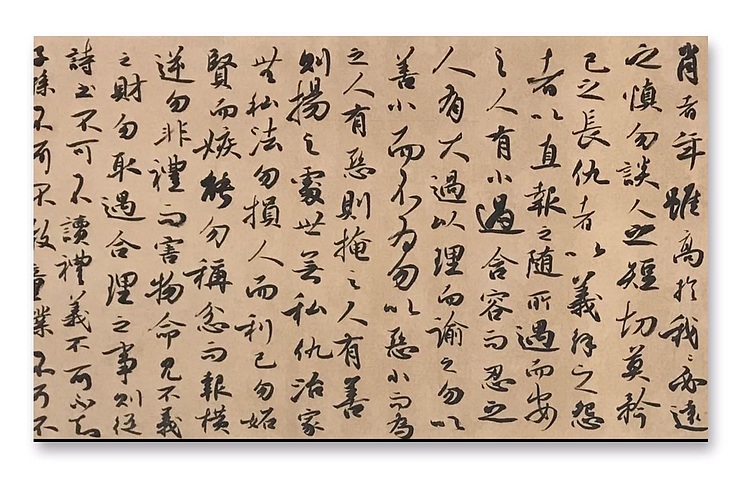 肖者年雖高於我〻必遠
之慎勿談人之短切莫矜
己之長仇者以義解之怨
者以直報之随所遇而安
之人有小過含容而忍之
人有大過以理而諭之勿以
善小而不为勿以惡小而為
之人有惡則掩之人有善
則揚之處世無私仇治家
無私法勿損人而利己勿妬
賢而嫉能勿稱忿而報橫
逆勿非禮而害物命見不義
之財勿取遇合理之事則從
詩書不可不讀禮義不可不知
子孫不可不教童僕不可不